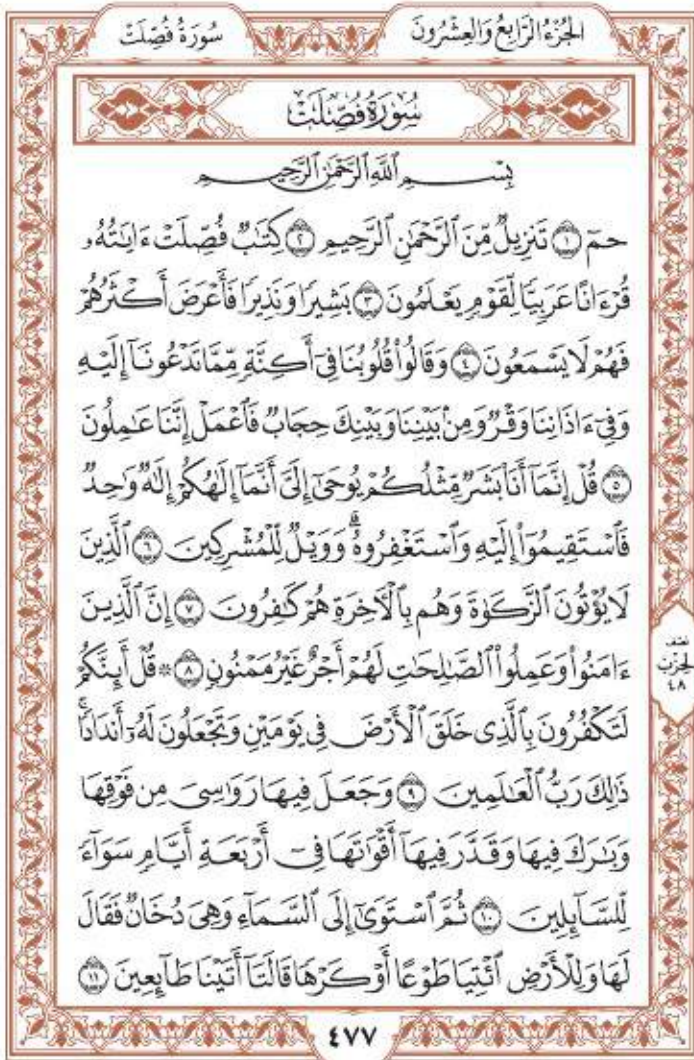 سُورَةُ فُصِّلَتْ
الجُزْءُ الرَّابِعُ وَالعِشْرُونَ
سُورَةُ فُصِّلَتْ
بِسْمِ ٱللَّهِ ٱلرَّحْمَٰنِ ٱلرَّحِيمِ
حمٓ ۝١ تَنزِيلٌ مِّنَ ٱلرَّحْمَٰنِ ٱلرَّحِيمِ ۝٢ كِتَٰبٌ فُصِّلَتْ ءَايَٰتُهُۥ
قُرْءَانًا عَرَبِيًّا لِّقَوْمٍ يَعْلَمُونَ ۝٣ بَشِيرًا وَنَذِيرًا فَأَعْرَضَ أَكْثَرُهُمْ
فَهُمْ لَا يَسْمَعُونَ ۝٤ وَقَالُوا۟ قُلُوبُنَا فِىٓ أَكِنَّةٍ مِّمَّا تَدْعُونَآ إِلَيْهِ
وَفِىٓ ءَاذَانِنَا وَقْرٌ وَمِنۢ بَيْنِنَا وَبَيْنِكَ حِجَابٌ فَٱعْمَلْ إِنَّنَا عَٰمِلُونَ
۝٥ قُلْ إِنَّمَآ أَنَا۠ بَشَرٌ مِّثْلُكُمْ يُوحَىٰٓ إِلَىَّ أَنَّمَآ إِلَٰهُكُمْ إِلَٰهٌ وَٰحِدٌ
فَٱسْتَقِيمُوٓا۟ إِلَيْهِ وَٱسْتَغْفِرُوهُ ۗ وَوَيْلٌ لِّلْمُشْرِكِينَ ۝٦ ٱلَّذِينَ
لَا يُؤْتُونَ ٱلزَّكَوٰةَ وَهُم بِٱلْءَاخِرَةِ هُمْ كَٰفِرُونَ ۝٧ إِنَّ ٱلَّذِينَ
ءَامَنُوا۟ وَعَمِلُوا۟ ٱلصَّٰلِحَٰتِ لَهُمْ أَجْرٌ غَيْرُ مَمْنُونٍ ۝٨ ۞ قُلْ أَئِنَّكُمْ
لَتَكْفُرُونَ بِٱلَّذِى خَلَقَ ٱلْأَرْضَ فِى يَوْمَيْنِ وَتَجْعَلُونَ لَهُۥٓ أَندَادًا ۚ
ذَٰلِكَ رَبُّ ٱلْعَٰلَمِينَ ۝٩ وَجَعَلَ فِيهَا رَوَٰسِىَ مِن فَوْقِهَا
وَبَٰرَكَ فِيهَا وَقَدَّرَ فِيهَآ أَقْوَٰتَهَا فِىٓ أَرْبَعَةِ أَيَّامٍ سَوَآءً
لِّلسَّآئِلِينَ ۝١٠ ثُمَّ ٱسْتَوَىٰٓ إِلَى ٱلسَّمَآءِ وَهِىَ دُخَانٌ فَقَالَ
لَهَا وَلِلْأَرْضِ ٱئْتِيَا طَوْعًا أَوْ كَرْهًا قَالَتَآ أَتَيْنَا طَآئِعِينَ ۝١١
نصف
الحزب
٤٨
٤٧٧